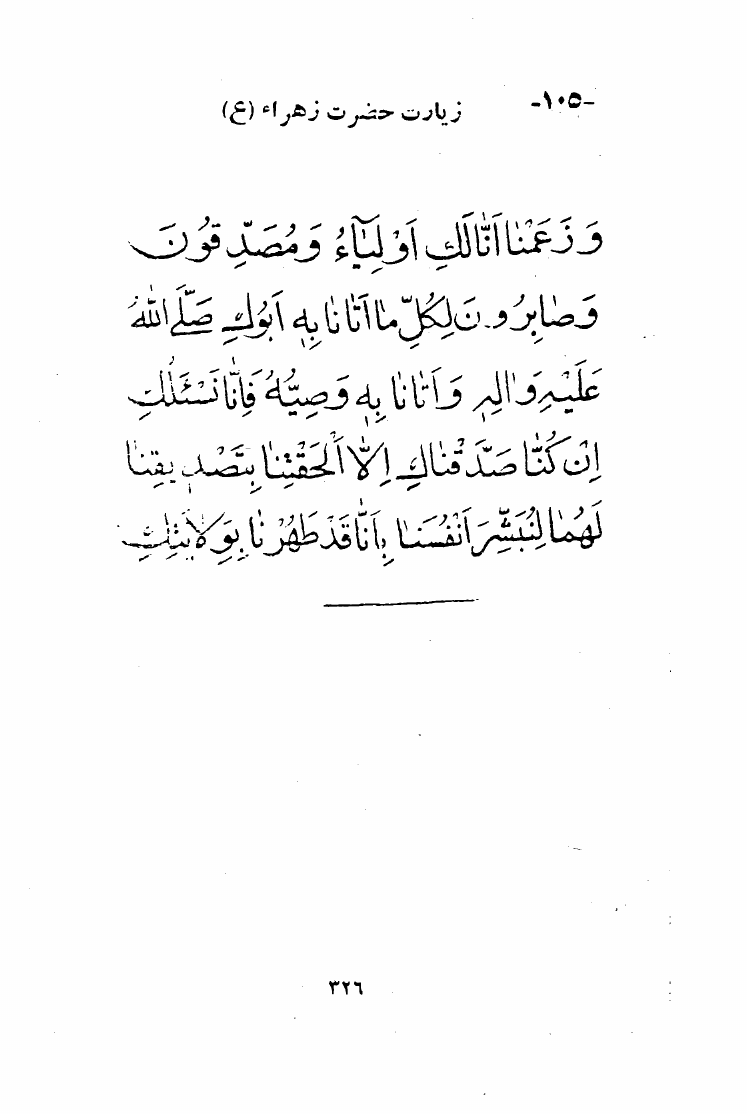 -۱۰۵-
زیارت حضرت زهراء (ع)
وَ زَعَمْنا اَنّا لَكِ اَوْلِيآءُ وَمُصَدِّقُونَ
وَصابِرُونَ لِكُلِّ ما اَتانا بِهِ اَبُوكِ صَلَّى اللهُ
عَلَيْهِ وَالِهِ وَاَتانا بِهِ وَصِيُّهُ فَاِنّا نَسْئَلُكِ
اِنْ كُنّا صَدَّقْناكِ اِلّا اَلْحَقْتِنا بِتَصْديقِنا
لَهُما لِنُبَشِّرَ اَنْفُسَنا بِاَنّا قَدْ طَهُرْنا بِوِلايَتِكِ
۳۲۶